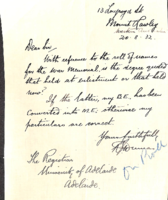 Mount Lawley
Dear Sir,
With reference to the roll of names
for the War Memorial is the degree quoted
that held at enlistment or that held
now?
If the latter, my B.E. has been
converted into M.E. otherwise my
particulars are correct.
Yours faithfully,
The Registrar
University of Adelaide
Adelaide.